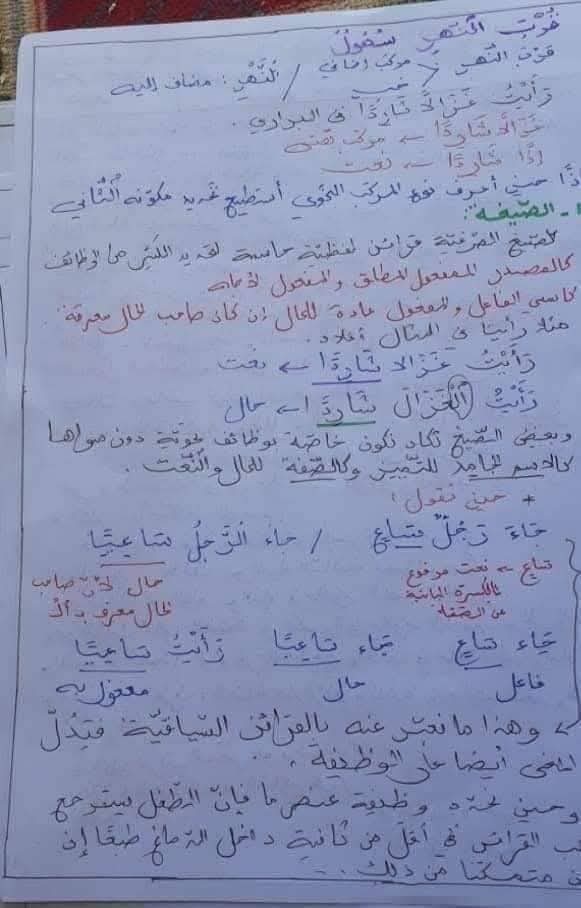 قُرْبَ النَّهْرِ سُهُولٌ
قربَ النهر : مركب إضافي / النَّهْرِ : مضاف إليه
خبر
رَأَيْتُ غَزَالاً شَارِدًا في البراري.
غَزَالاً شَارِدًا ← مركب نعتي
إذًا شَارِدًا ← نعت
إذًا حين أعرف نوع المركب النحوي أستطيع تحديد مكوّنه الثاني
- الصّيغة:
للصيغ الصّرفيّة قرائن لفظيّة حاسمة لتحديد الكثير من الوظائف
كالمصدر المفعول المطلق والمفعول لأجله
كاسمي الفاعل والمفعول عادة للحال إن كان صاحب الحال معرفة
مثلما رأينا في المثال أعلاه.
رَأَيْتُ غَزَالا شَارِدًا ← نعت
رَأَيْتُ الْغَزَالَ شَارِدًا ← حال
وبعض الصّيغ تكاد تكون خاصّة بوظائف نحويّة دون سواها
كالاسم الجامد للتمييز وكالصّفة للحال والنّعت.
* حين نقول:
جَاءَ رَجُلٌ سَاعٍ / جاء الرَّجلُ سَاعِيًا
سَاعٍ ← نعت مرفوع
بالكسرة
عن الضمّة
حال لأنّ صاحب
الحال معرف بـ ال
جَاء سَاعٍ جَاء سَاعِيًا رَأَيْتُ سَاعِيًا
فاعل حال مفعول به
← وهذا ما نعبّر عنه بالقرائن السّياقيّة فيَدُلّ
المعنى أيضا على الوظيفة ..
وحين نحدّد وظيفة عنصر ما فإنّ الطّفل يسترجع
القرائن في أقلّ من ثانية داخل الدّماغ طبعًا إن
متمكّنا من ذلك...